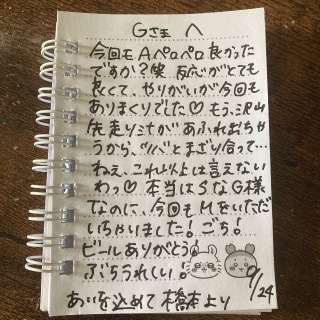 Gさま へ
今回もAペロペロ良かった
ですか?笑 反応がとても
良くて、やりがいが今回も
ありまくりでした♡ もう、沢山
先走りさがあふれおちちゃ
うから、ツバとまざり合って…
ねぇ、これ以上は言えない
わっ♡ 本当はSなG様
なのに、今回もMをいただ
いちゃいました!ごち!
ビールありがとう!
ぶちうれしい!
9/24
あいを込めて 橋本より